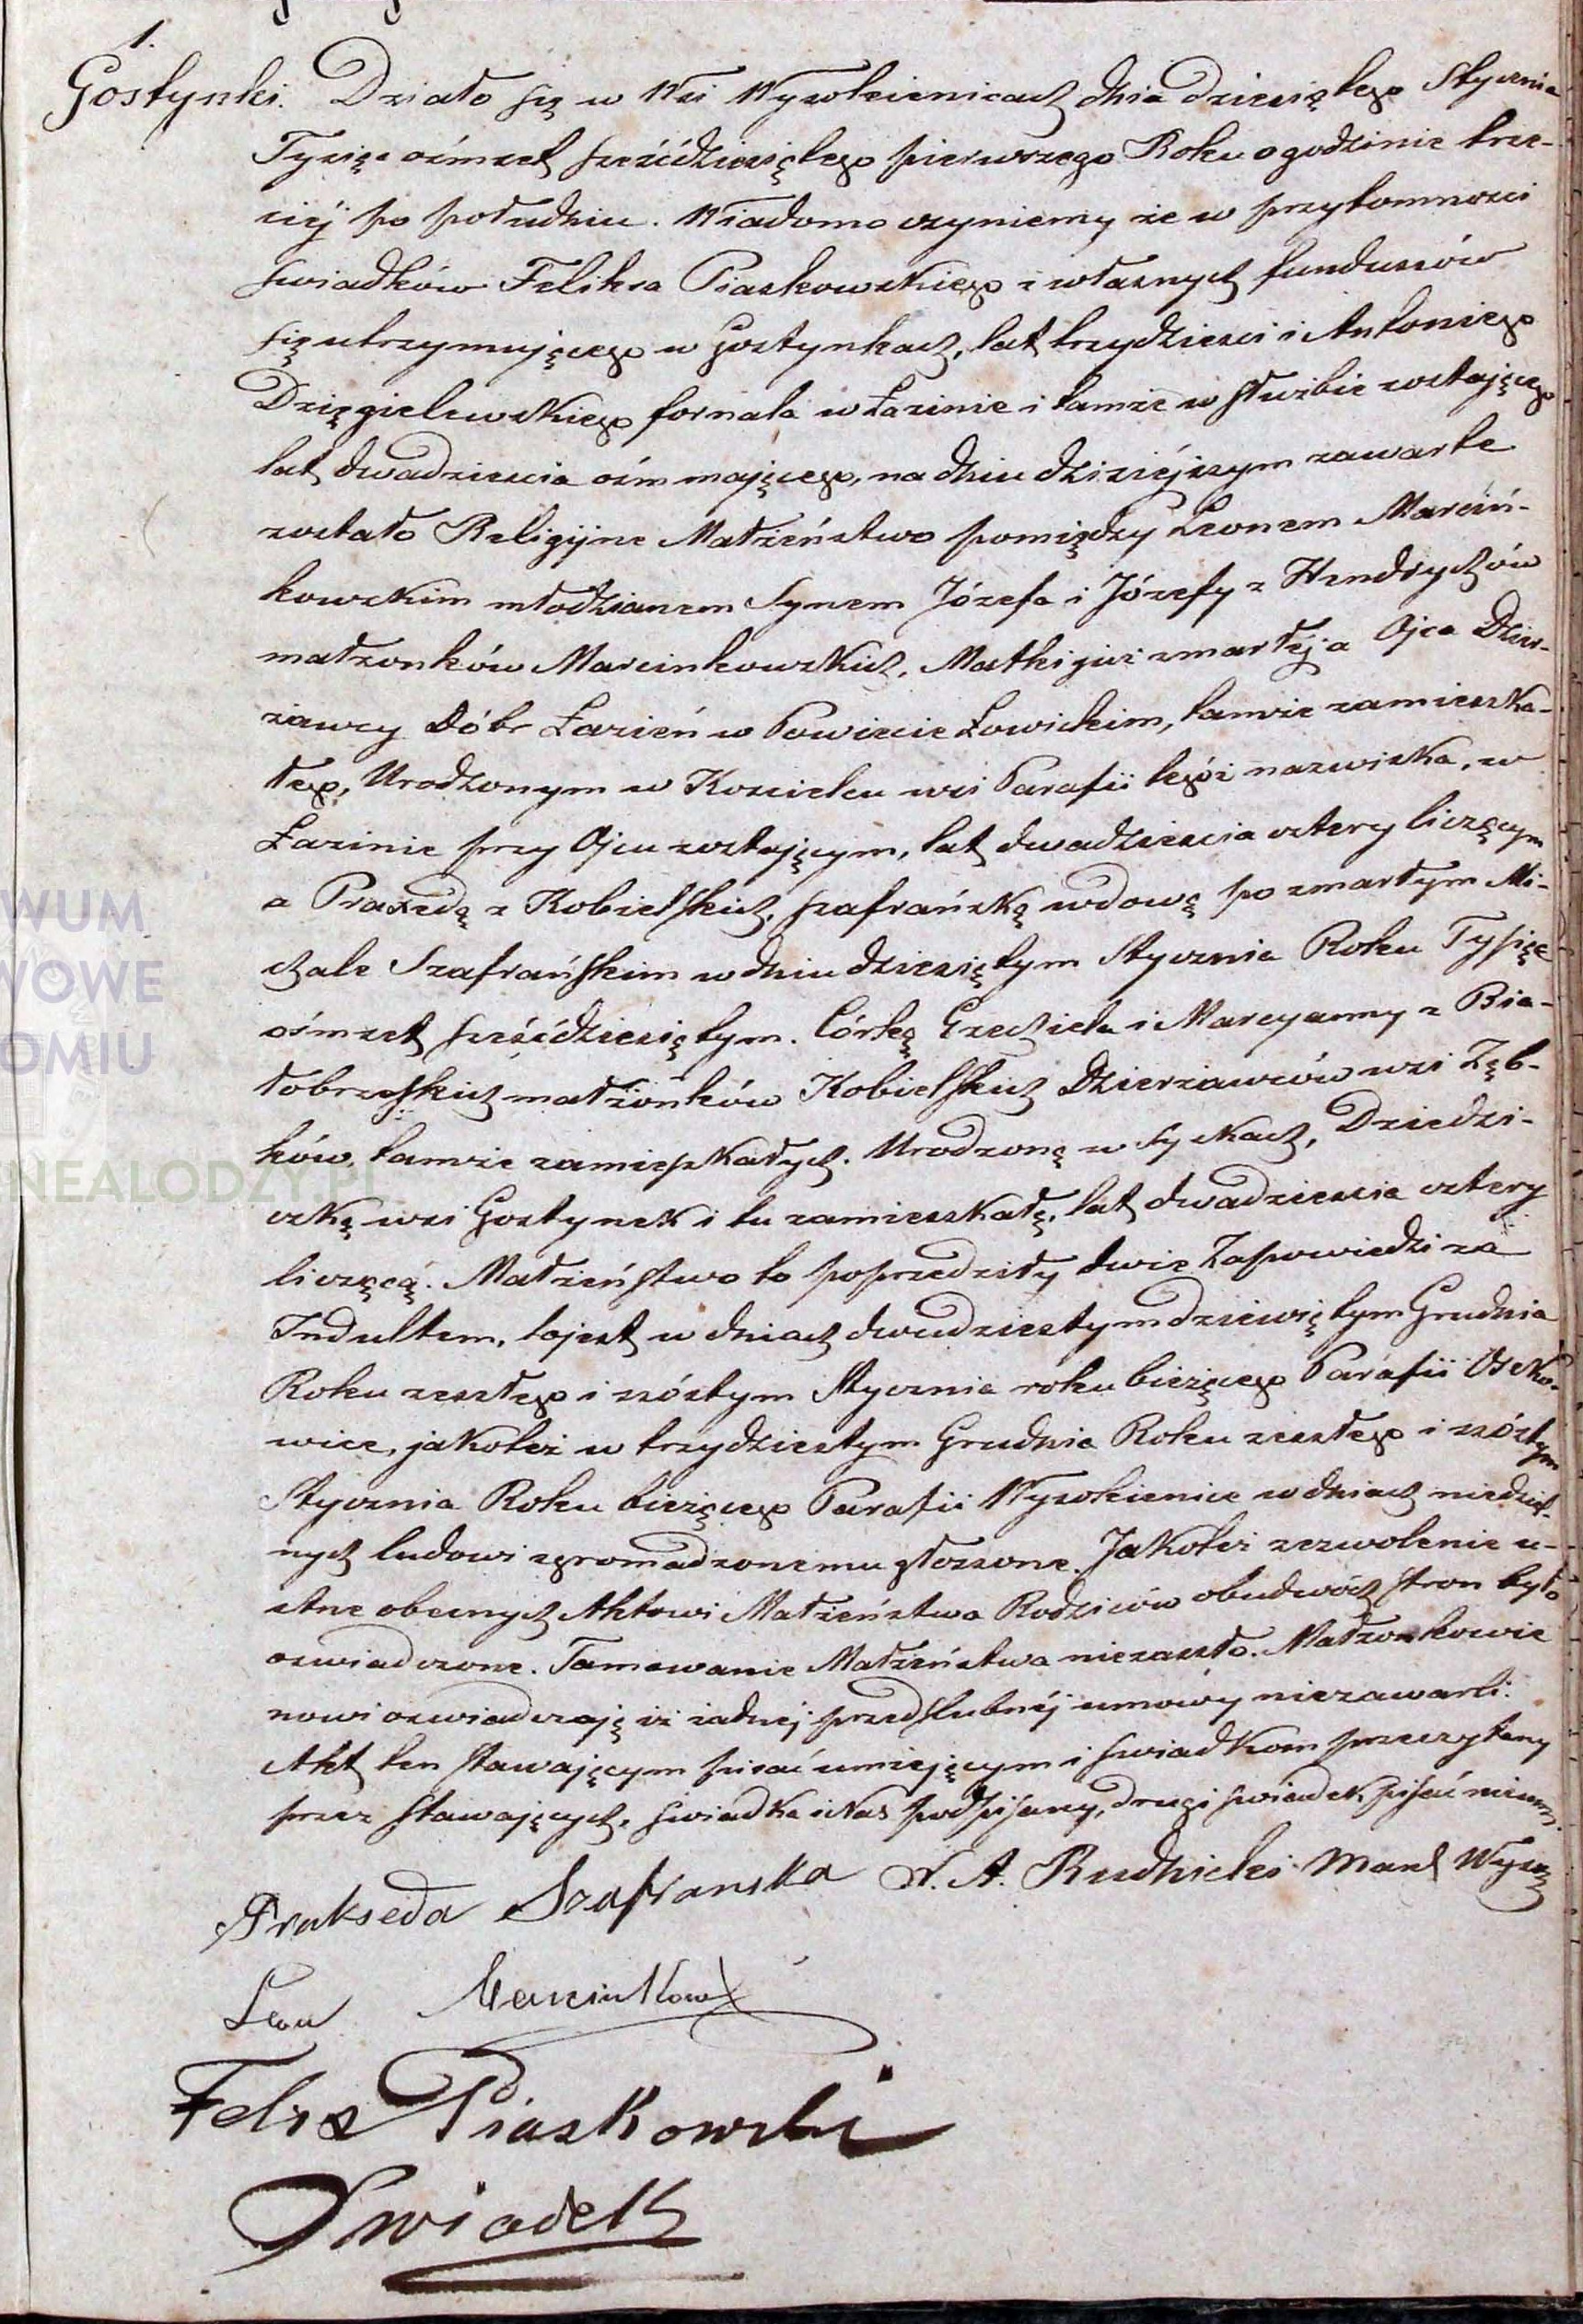 1.
Gostynki. Działo się w Wsi Wysokienicach dnia dziesiątego Stycznia
Tysiąc ośmset sześćdziesiątego pierwszego Roku o godzinie trze-
ciéj po południu. Wiadomo czyniemy że w przytomnosci
swiadków Feliksa Piaskowskiego z własnych funduszów
się utrzymującego w Gostynkach, lat trzydziesci i Antoniego
Dzięgielewskiego fornala w Łazinie i tamże w służbie zostającego
lat dwadziescia ośm mającego, na dniu dzisiéjszym zawarte
zostało Religijne Małżeństwo pomiędzy Leonem Marciń-
kowskim młodzianem Synem Józefa i Józefy z Hendrychów
małżonków Marcinkowskich, Matki już zmarłéj a Ojca Dzier-
żawcy Dóbr Łazień w Powiecie Łowickim, tamże zamieszka-
łego, Urodzonym w Koscielcu wsi Parafii tegóż nazwiska, w
Łazinie przy Ojcu zostającym, lat dwadziescia cztery liczącym
a Praxedą z Kobielskich, Szafrańską wdową po zmarłym Mi-
chale Szafrańskim w dniu dziesiątym Stycznia Roku Tysiąc
ośmset sześćdziesiątym. Córką Ezechiela i Maryanny z Bia-
łobrzeskich małżonków Kobielskich Dzierżawców wsi Ząb-
ków, tamże zamieszkałych. Urodzoną w Syckach, Dziedzi-
czką wsi Gostynek i tu zamieszkałą, lat dwadziescia cztery
liczącą. Małżeństwo to poprzedziły dwie Zapowiedzi za
Indultem, to jest w dniach dwudziestym dziewiątym Grudnia
Roku zeszłego i szóstym Stycznia roku bieżącego Parafii Oszko-
wice, jakoteż w trzydziestym Grudnia Roku zeszłego i szóstym
Stycznia Roku bieżącego Parafii Wysokienice w dniach niedziel-
nych ludowi zgromadzonemu głoszone. Jakoteż zezwolenie u-
stne obecnych Aktowi Małżeństwa Rodziców obudwóch stron było
oswiadczone. Tamowanie Małżeństwa niezaszło. Małzonkowie
nowi oswiadczają iż żadnéj przedślubnéj umowy niezawarli.
Akt ten stawającym pisać umiejącym i swiadkom przeczytany
przez stawających, swiadka i Nas podpisany, drugi swiadek pisać nieum.
Prakseda Szafranska X. A. Rudnicki
Leon Marcinkow
Felix Piaskowski
Swiadek